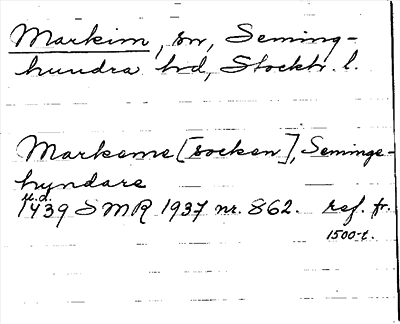 Markim, sn, Seming-
hundra hd, Stockh. l.
Markeme [socken], Seminge-
hyndare
u.d.
1439 SMR 1937 nr. 862. ref. fr.
1500-t.